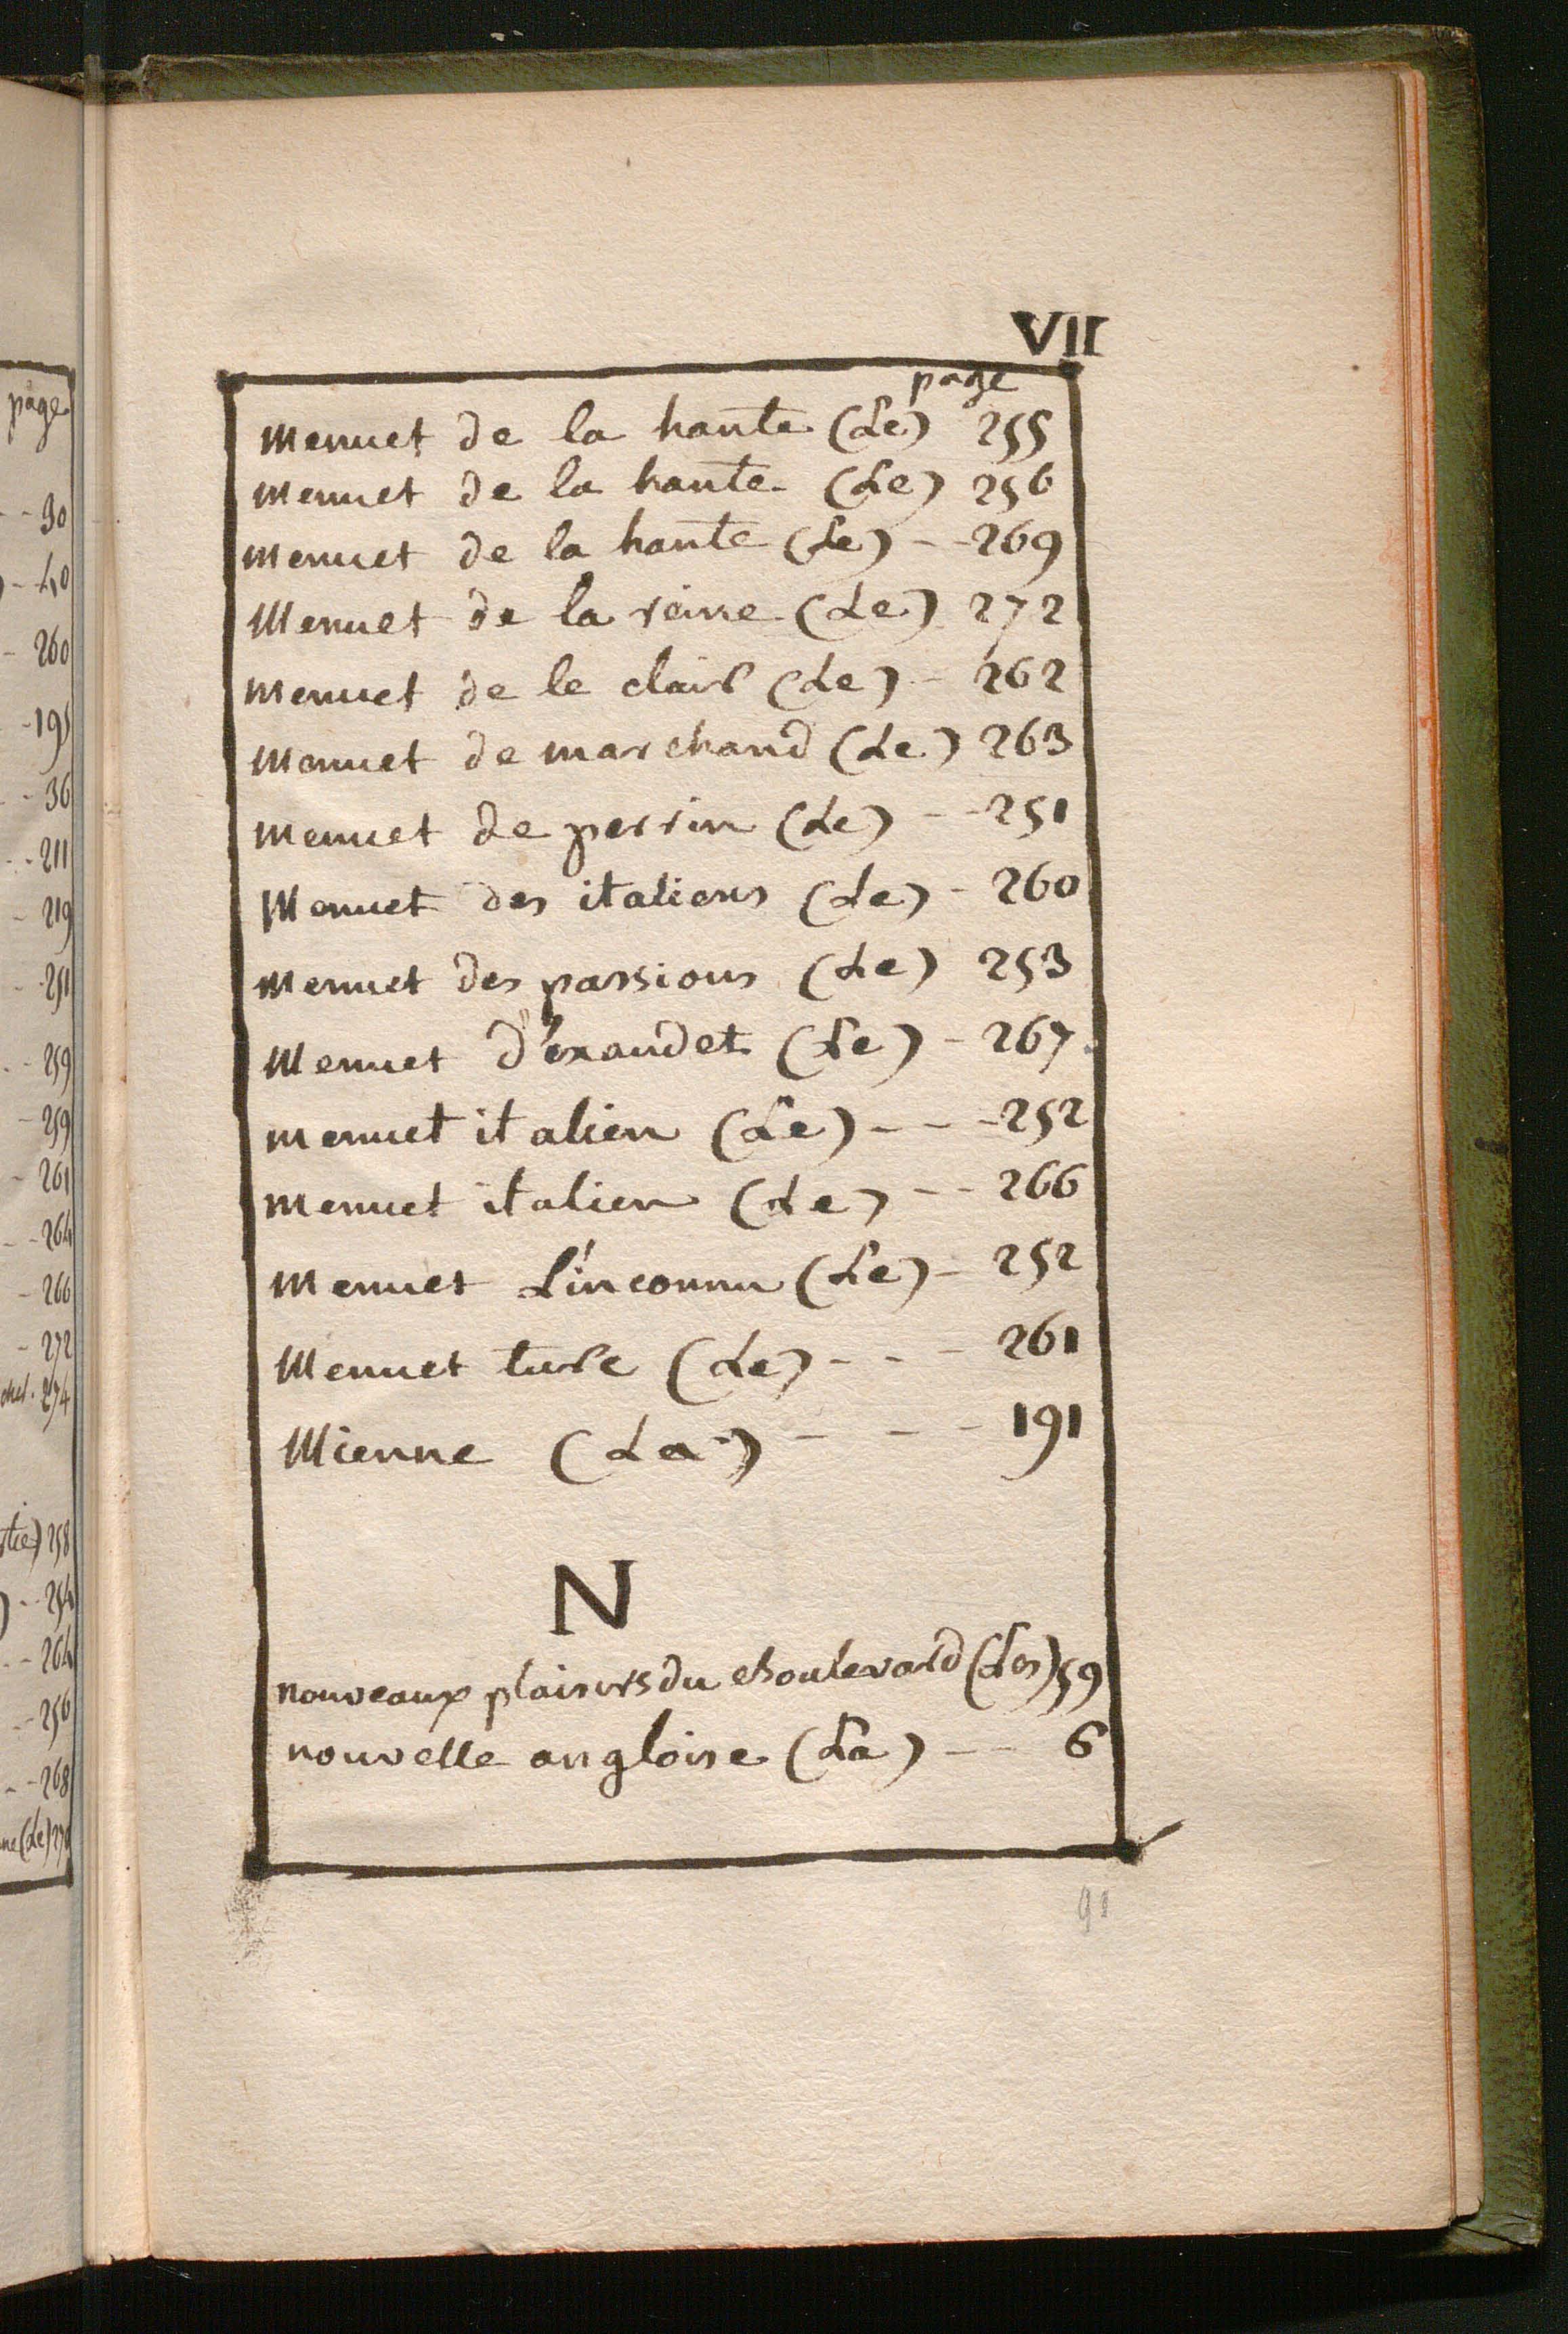 page
- - 90
) - 40
- 260
- 195
- - 36
- - 211
- 219
- - 251
- - 259
- 259
- 261
- - 264
- 266
- 272
chet. 274
tie) 258
) - - 254
- - 264
- - 256
- - 268
ne (Le) 270
VII
page
Menuet de la hante (Le) 255
Menuet de la hante (Le) 256
Menuet de la hante (Le) - - 269
Menuet de la reine (Le) 272
Menuet de le clair (Le) - 262
Menuet de marchand (Le) 263
Menuet de perrin (Le) - - 251
Menuet des italiens (Le) - 260
Menuet des passions (Le) 253
Menuet d'éxaudet (Le) - 267.
menuet italien (Le) - - - 252
Menuet italien (Le) - - 266
Menuet L'inconnu (Le) - 252
Menuet turc (Le) - - - 261
Mienne (La) - - - 191
N
nouveaux plaisirs du boulevard (Les) 59
nouvelle angloise (La) - - 6
91